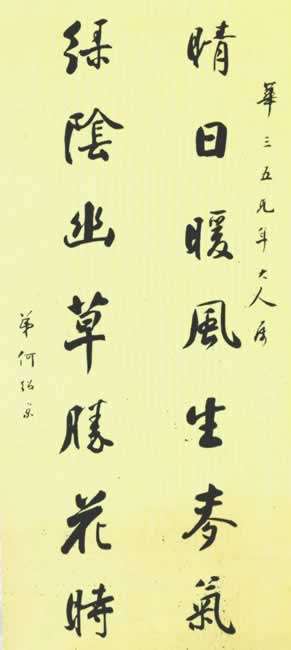 華三五兄年大人屬
晴日暖風生麥氣
綠陰幽草勝花時
弟何紹京